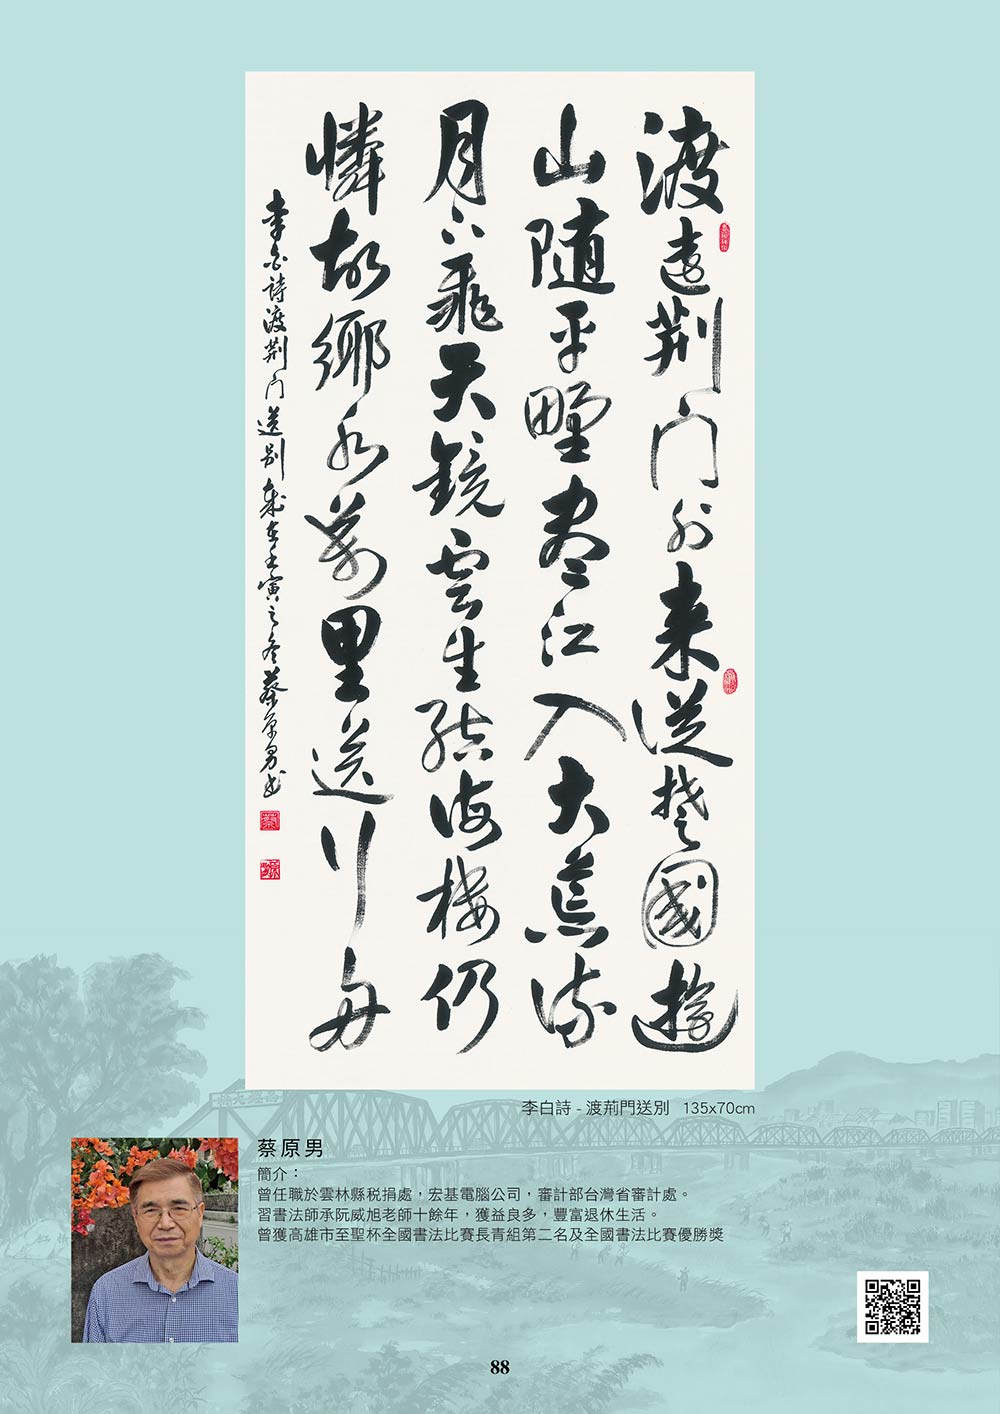 渡遠荊門外来從楚國遊
山随平野盡江入大荒流
月下飛天鏡雲生結海樓仍
憐故鄉水萬里送行舟
李白詩渡荊門送別 歲在壬寅之冬蔡原男書
李白詩 - 渡荊門送別 135x70cm
蔡原男
簡介：
曾任職於雲林縣稅捐處，宏基電腦公司，審計部台灣省審計處。
習書法師承阮威旭老師十餘年，獲益良多，豐富退休生活。
曾獲高雄市至聖杯全國書法比賽長青組第二名及全國書法比賽優勝獎
88